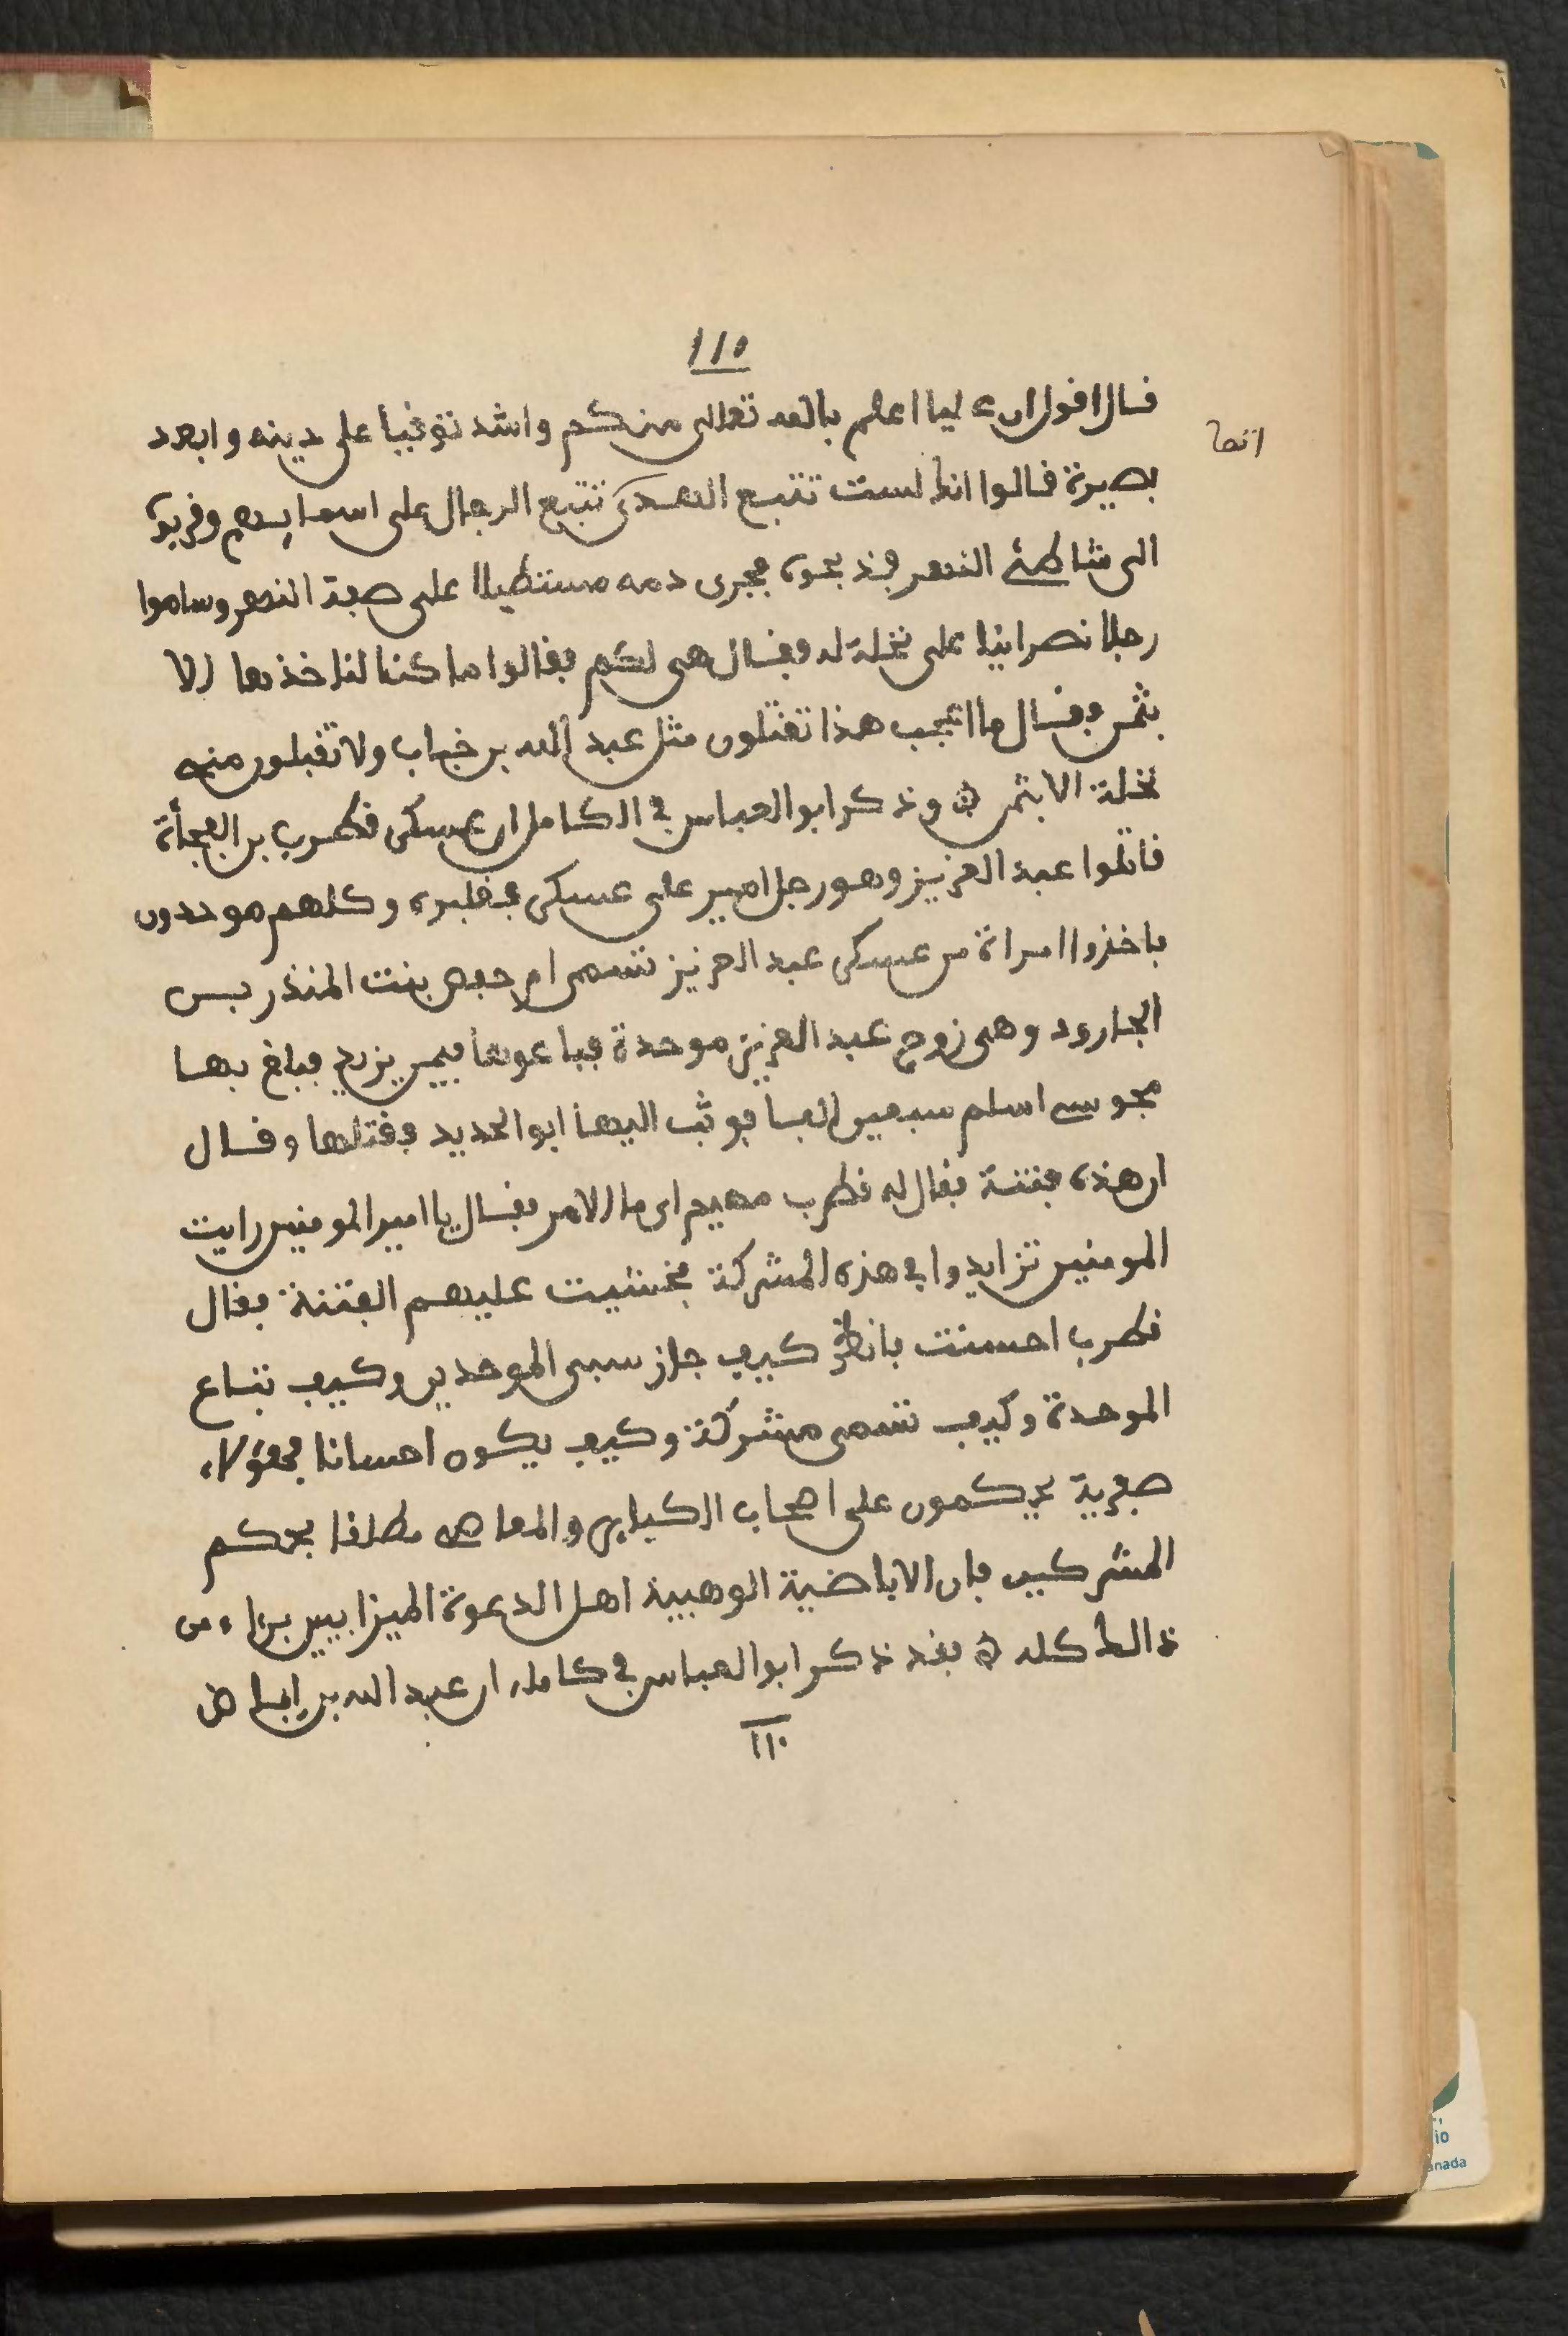 110
قال اقول ان عليا اعلم بالله تعالى منكم واشد توقيا على دينه وابعد
بصيرة قالوا انك لست تتبع الهدى تتبع الرجال على اسمايهم وقربوه
الى شاطئ النهر فذبحوه فجرى دمه مستطيلا على صفة النهر وساموا
رجلا نصرانيا على نخلة له فقال هى لكم فقالوا ما كنا لناخذها الا
بثمن فقال ما اعجب هذا تقتلون مثل عبد الله بن خباب ولا تقبلون منه
نخلة الا بثمن ه وذكر ابو العباس في الكامل ان عسكر قطرب بن الفجأة
قاتلوا عبد العزيز وهو رجل امير على عسكر فغلبوه وكلهم موحدون
فاخذوا امراة من عسكر عبد العزيز تسمى ام حفص بنت المنذر بن
الجارود وهى زوج عبد العزيز موحدة فباعوها فيمن يزيد فبلغ بها
مجوسي اسلم سبعين الفا فوثب اليها ابو الحديد فقتلها وقال
ان هذه فتنة فقال له قطرب مهيم اى ما الامر فقال يا امير المومنين رايت
المومنين تزايدوا في هذه المشركة فخشيت عليهم الفتنة فقال
قطرب احسنت فانظر كيف جاز سبى الموحدين وكيف تباع
الموحدة وكيف تسمى مشركة وكيف يكون احسانا فهؤلاء
صفرية يحكمون على اصحاب الكباير والمعاصي مطلقا بحكم
المشركين فان الاباضية الوهبية اهل الدعوة الميزابيين برءاء من
ذالك كله ه فقد ذكر ابو العباس في كامله ان عبد الله بن اباض
110